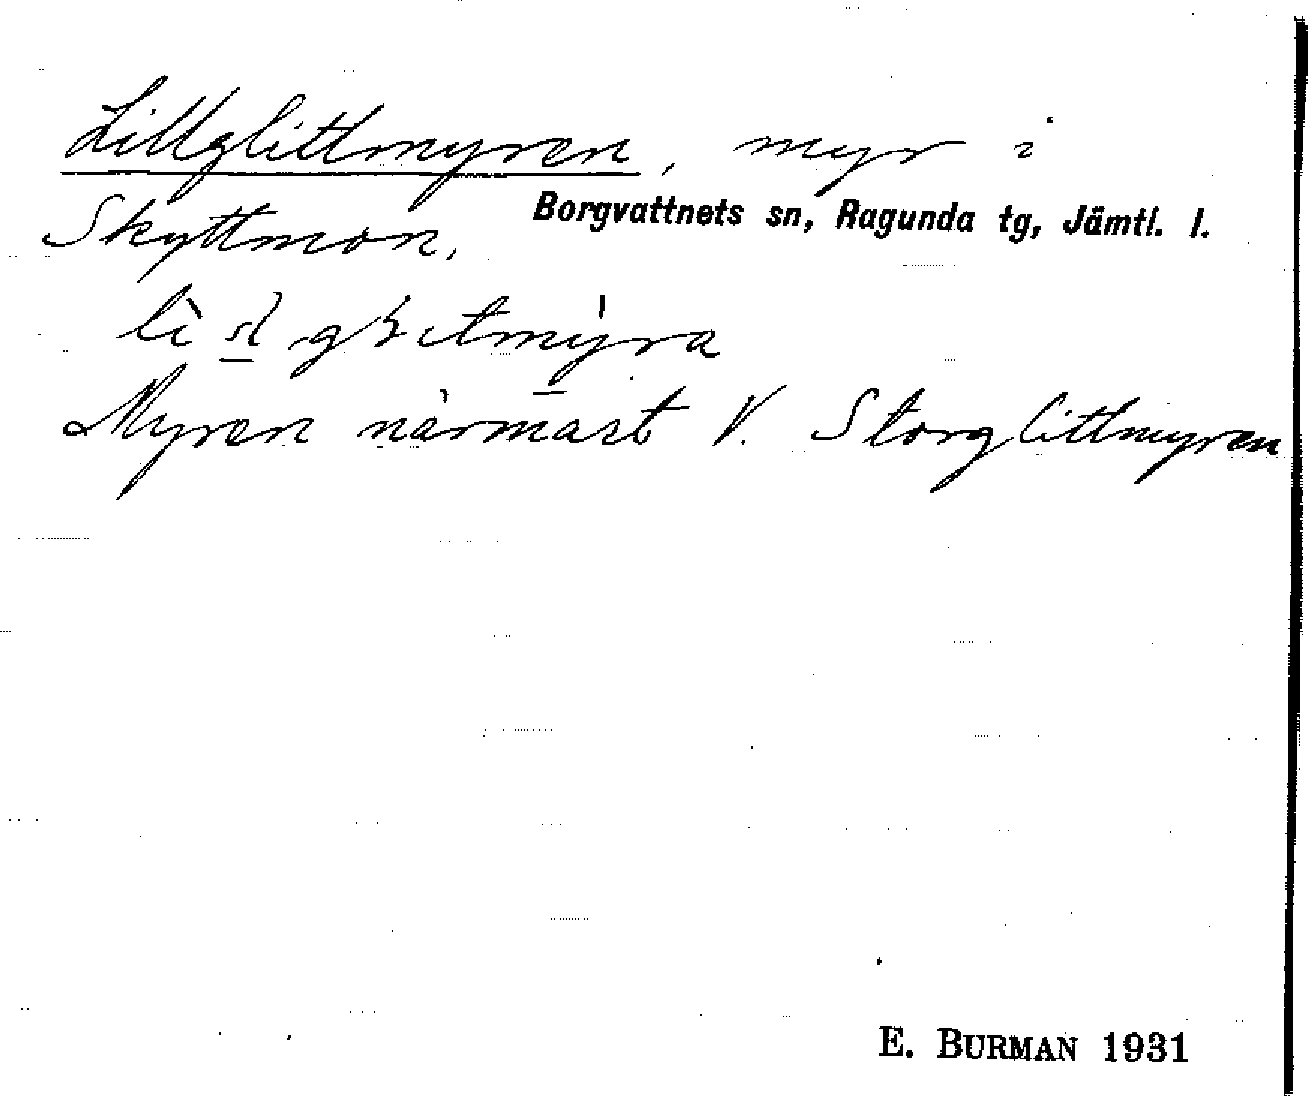 Lillglittmyren, myr i
Borgvattnets sn, Ragunda tg, Jämtl. l.
Skyttmon.
Myren närmast V. Storglittmyren
E. BURMAN 1931